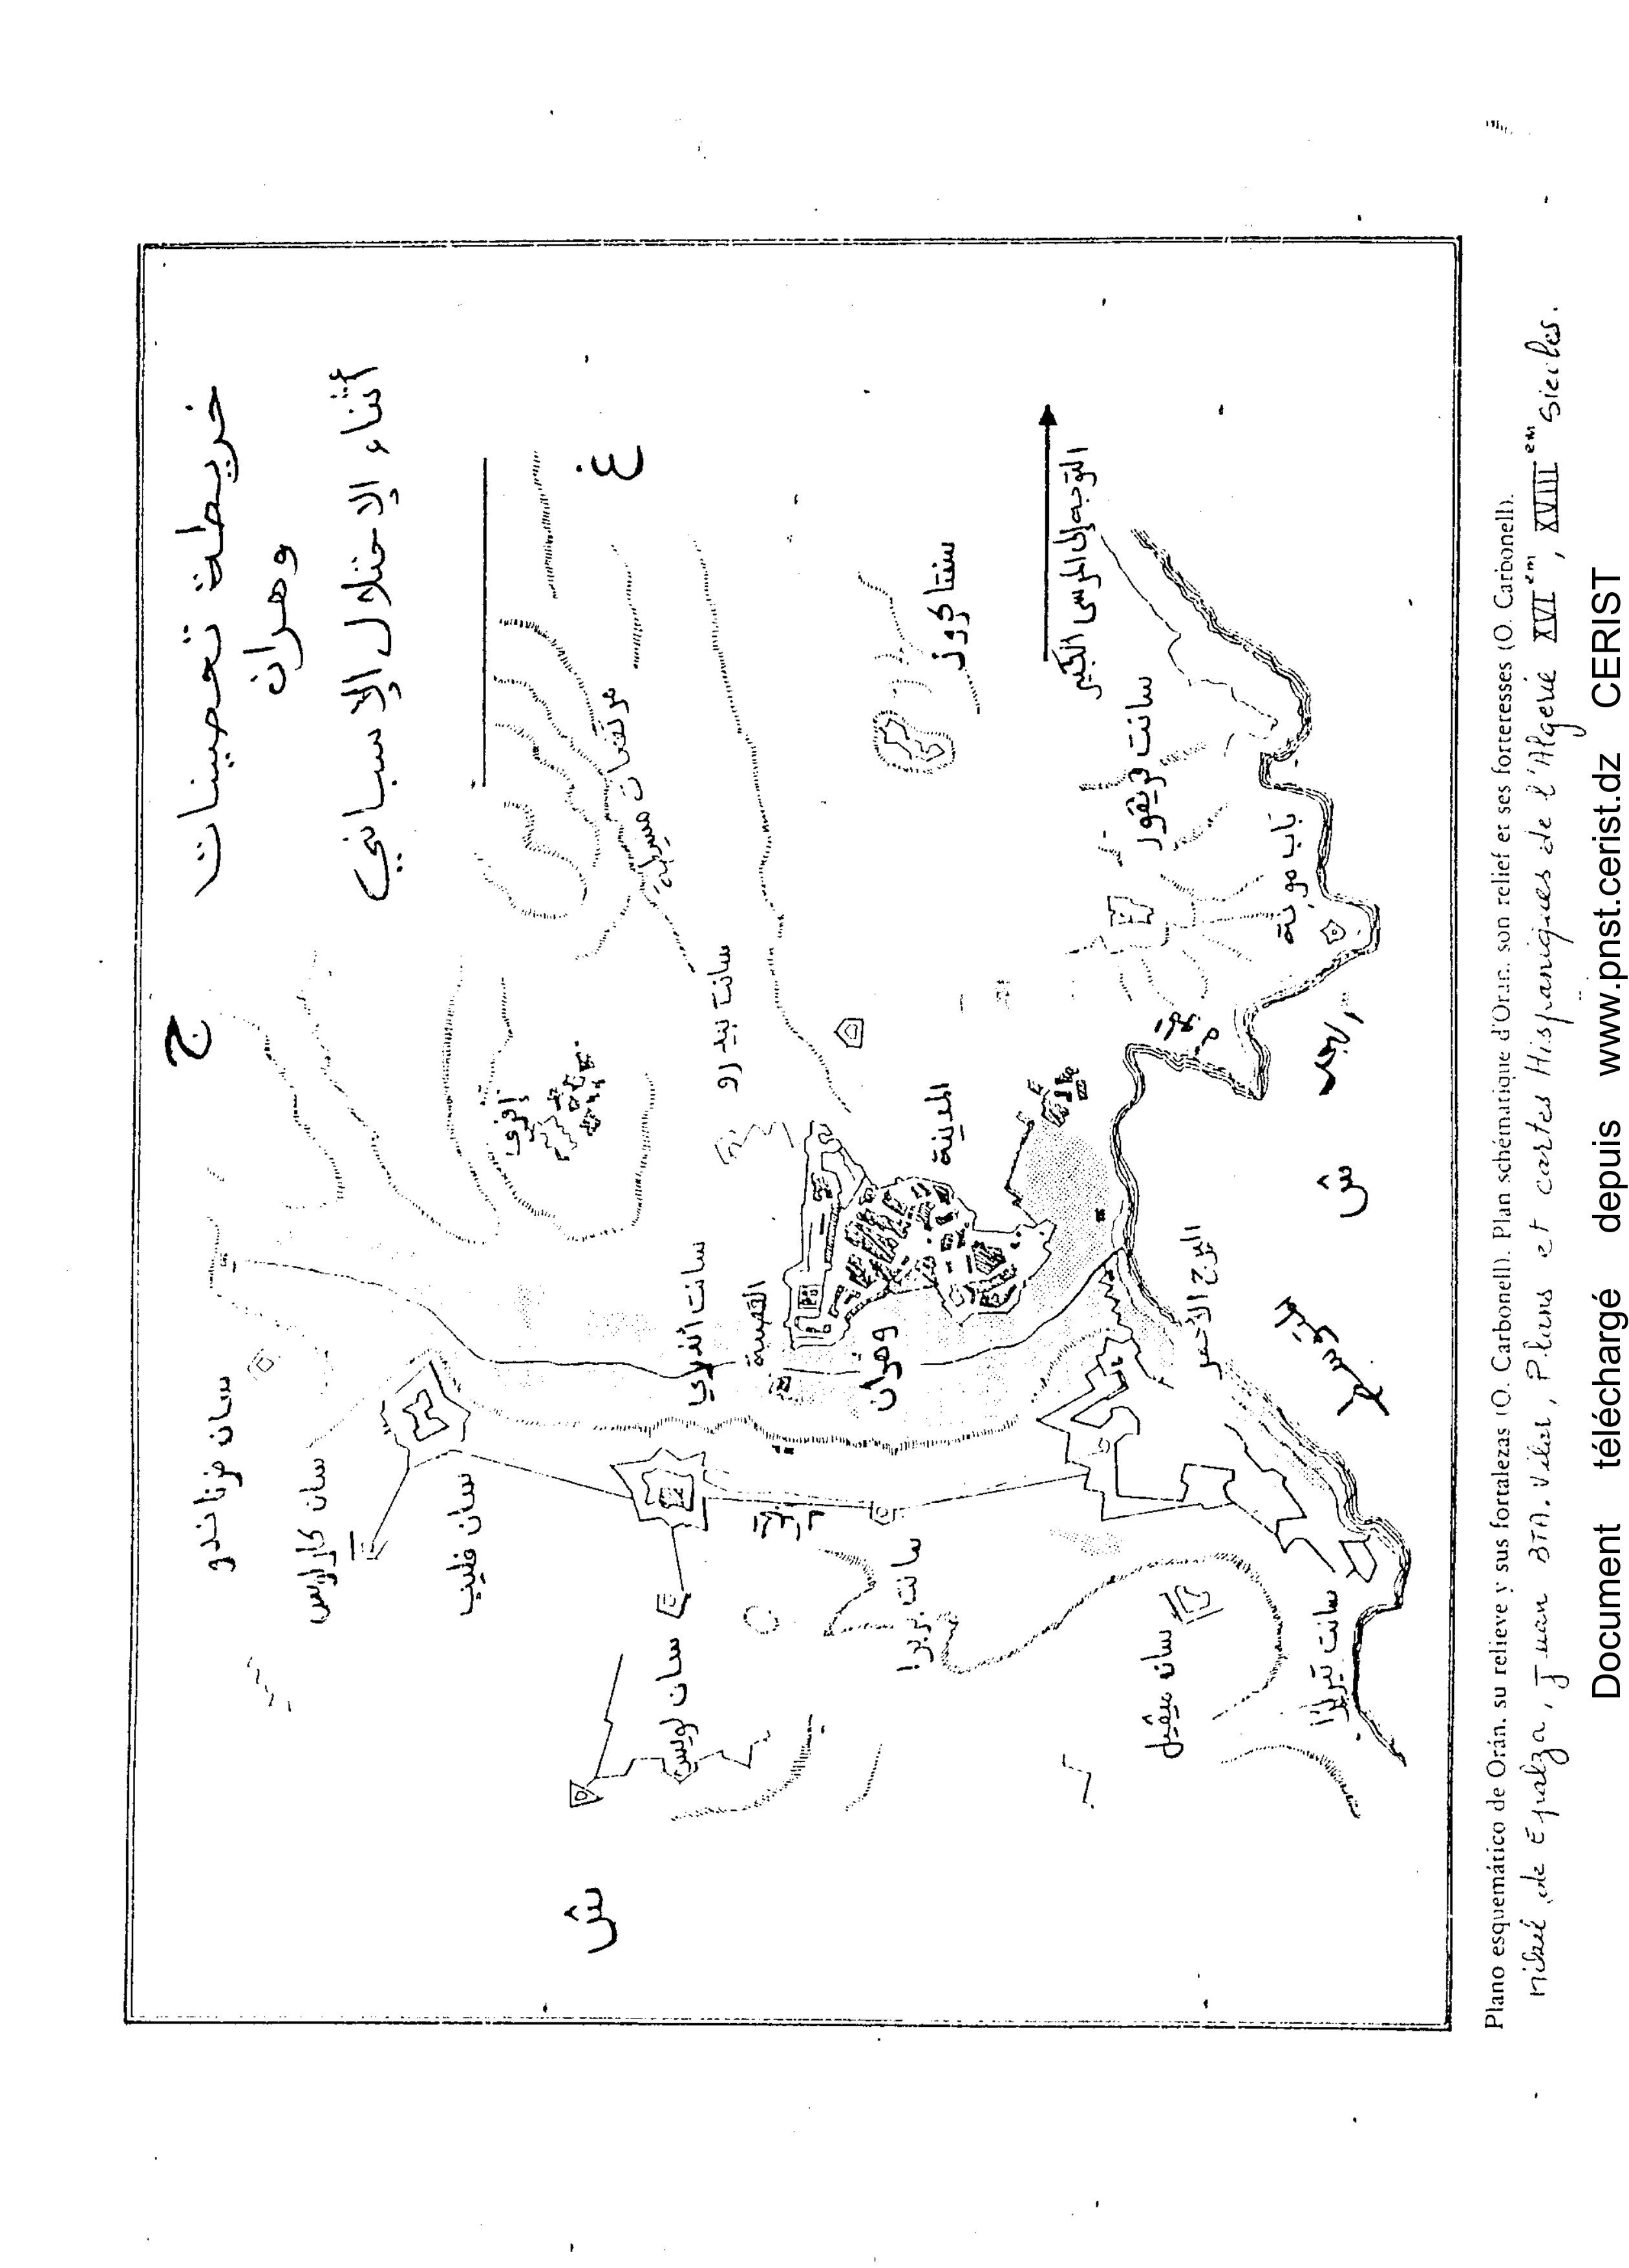 خريطة تحصينات
وهران
أثناء الإحتلال الإسباني
ج
غ
ش
ش
سان فرناندو
سان كارلوس
سان فليب
إفري
مرتفعات مسيلة
سانت بيدرو
سانت أندري
القصبة
وهران
المدينة
سنتاكروز
التوجه إلى المرسى الكبير
سانت قريقور
باب مونة
البرج الأحمر
سان لويس
سانت بربرا
سان ميقيل
سانت تيريزا
البحر
المتوسط
Plano esquemático de Orán, su relieve y sus fortalezas (O. Carbonell). Plan schématique d'Oran, son relief et ses forteresses (O. Carbonell).
Mikel de Epalza, Juan BTA. Vilar, Plans et cartes Hispaniques de l'Algerie XVI em, XVIII em Siecles.
Document téléchargé depuis www.pnst.cerist.dz CERIST